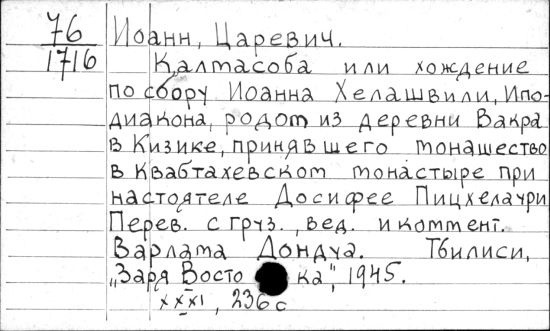 76
1716
Иоанн, Царевич.
Калмасоба или хождение
по сбору Иоанна Хелашвили, Ипо-
диакона, родом из деревни Вакра
в Кизике, принявшего монашество
в Квабтахевском монастыре при
настоятеле Досифее Пицхелаури
Перев. с груз., вед. и коммент.
Варлама Дондуа. Тбилиси,
„Заря Восто ка", 1945.
XXXI, 236 с